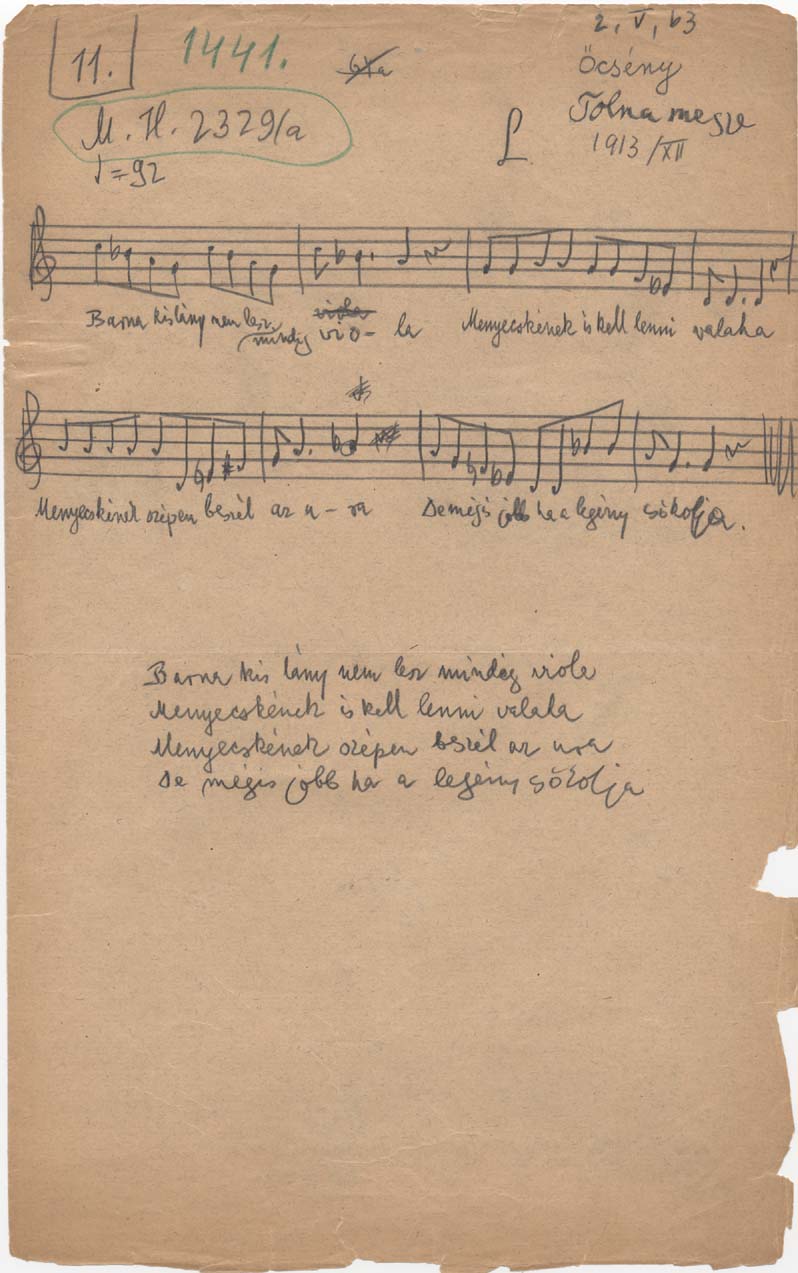 11.
1441.
2, V, 63
Őcsény
M. H. 2329/a
Tolna megye
L
1913/XII
♩=92
Barna kislány nem lesz mindég vio- la Menyecskének is kell lenni valaha
Menyecskének szépen beszél az u-ra De mégis jobb ha a legény csókolja.
Barna kis lány nem lesz mindég viola
Menyecskének is kell lenni valaha
Menyecskének szépen beszél az ura
De mégis jobb ha a legény